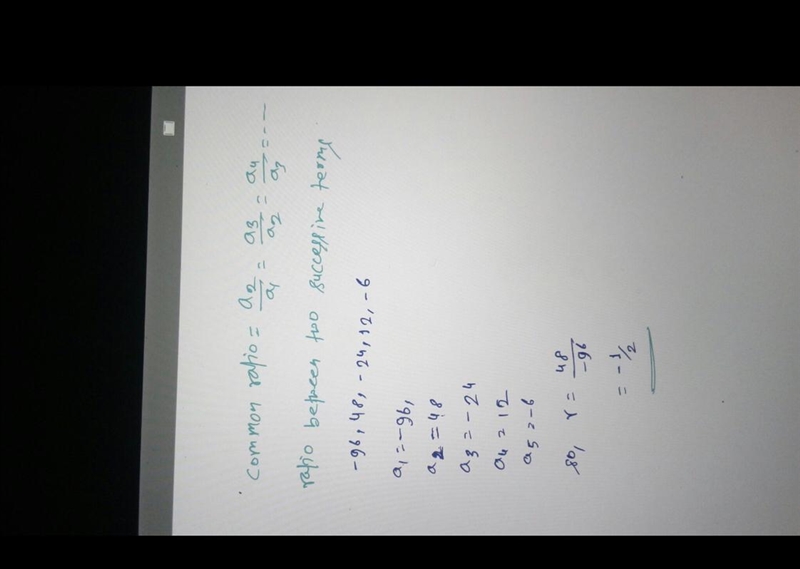 common ratio = a2/a1 = a3/a2 = a4/a3 = ---
ratio between two successive terms
-96, 48, -24, 12, -6
a1 = -96,
a2 = 48
a3 = -24
a4 = 12
a5 = -6
so, r = 48/-96
= -1/2